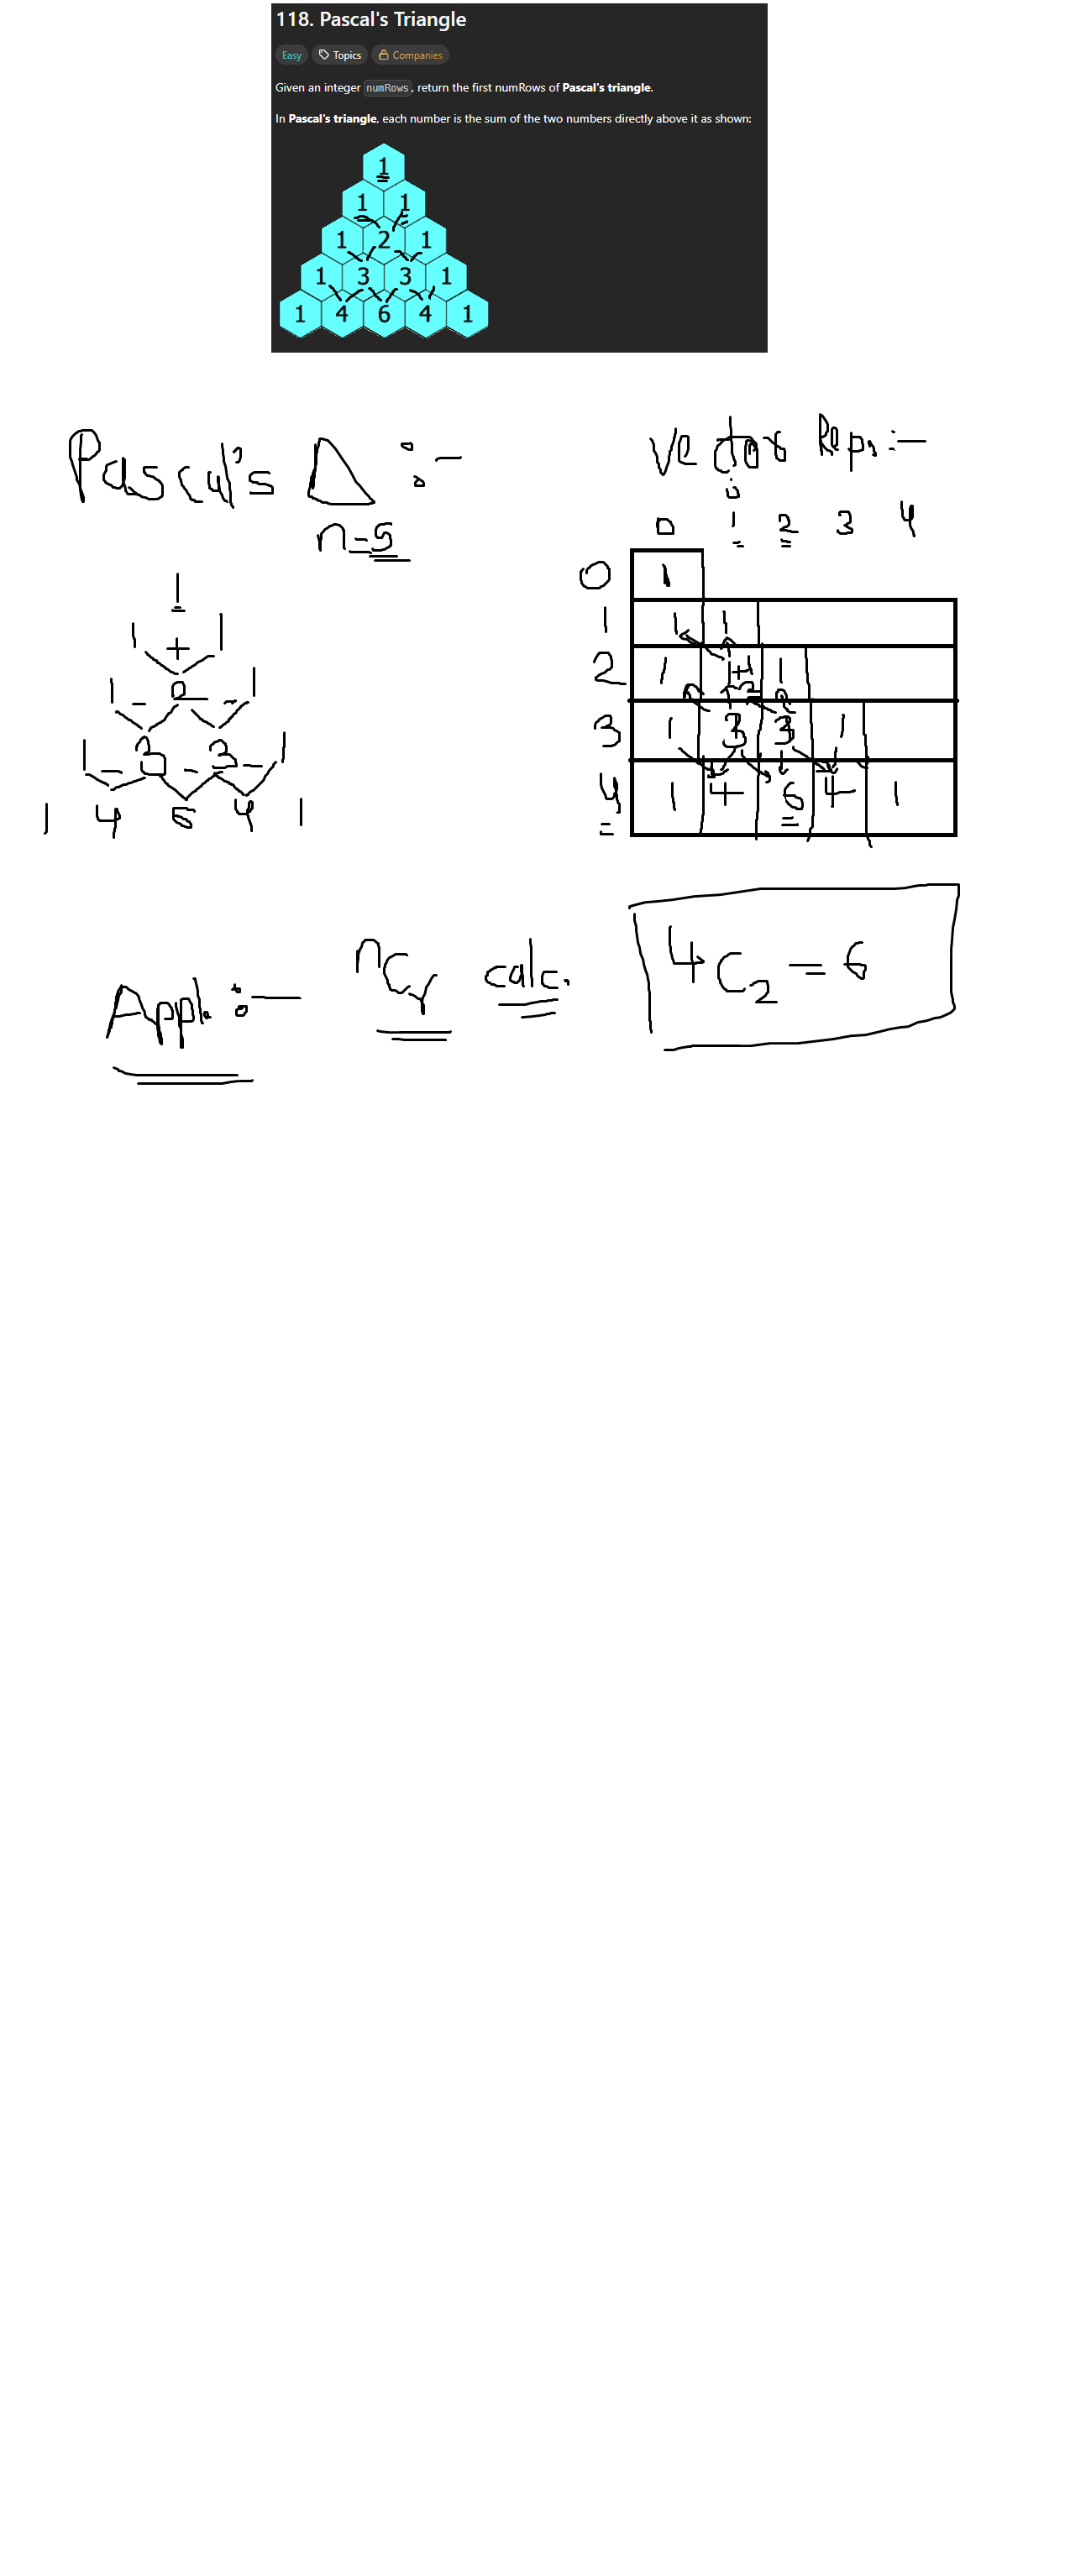 118. Pascal's Triangle
Easy Topics Companies
Given an integer numRows, return the first numRows of Pascal's triangle.
In Pascal's triangle, each number is the sum of the two numbers directly above it as shown:
1
1 1
1 2 1
1 3 3 1
1 4 6 4 1
Pascal's Δ :-
n=5
1
1 + 1
1 - 2 - 1
1 - 3 - 3 - 1
1 4 6 4 1
Vector Repr:-
j
0 1 2 3 4
0 1
1 1 1
2 1 1+1=2 1
3 1 3 3 1
4 1 4 6 4 1
Appl. :- nCr calc.
4C2 = 6